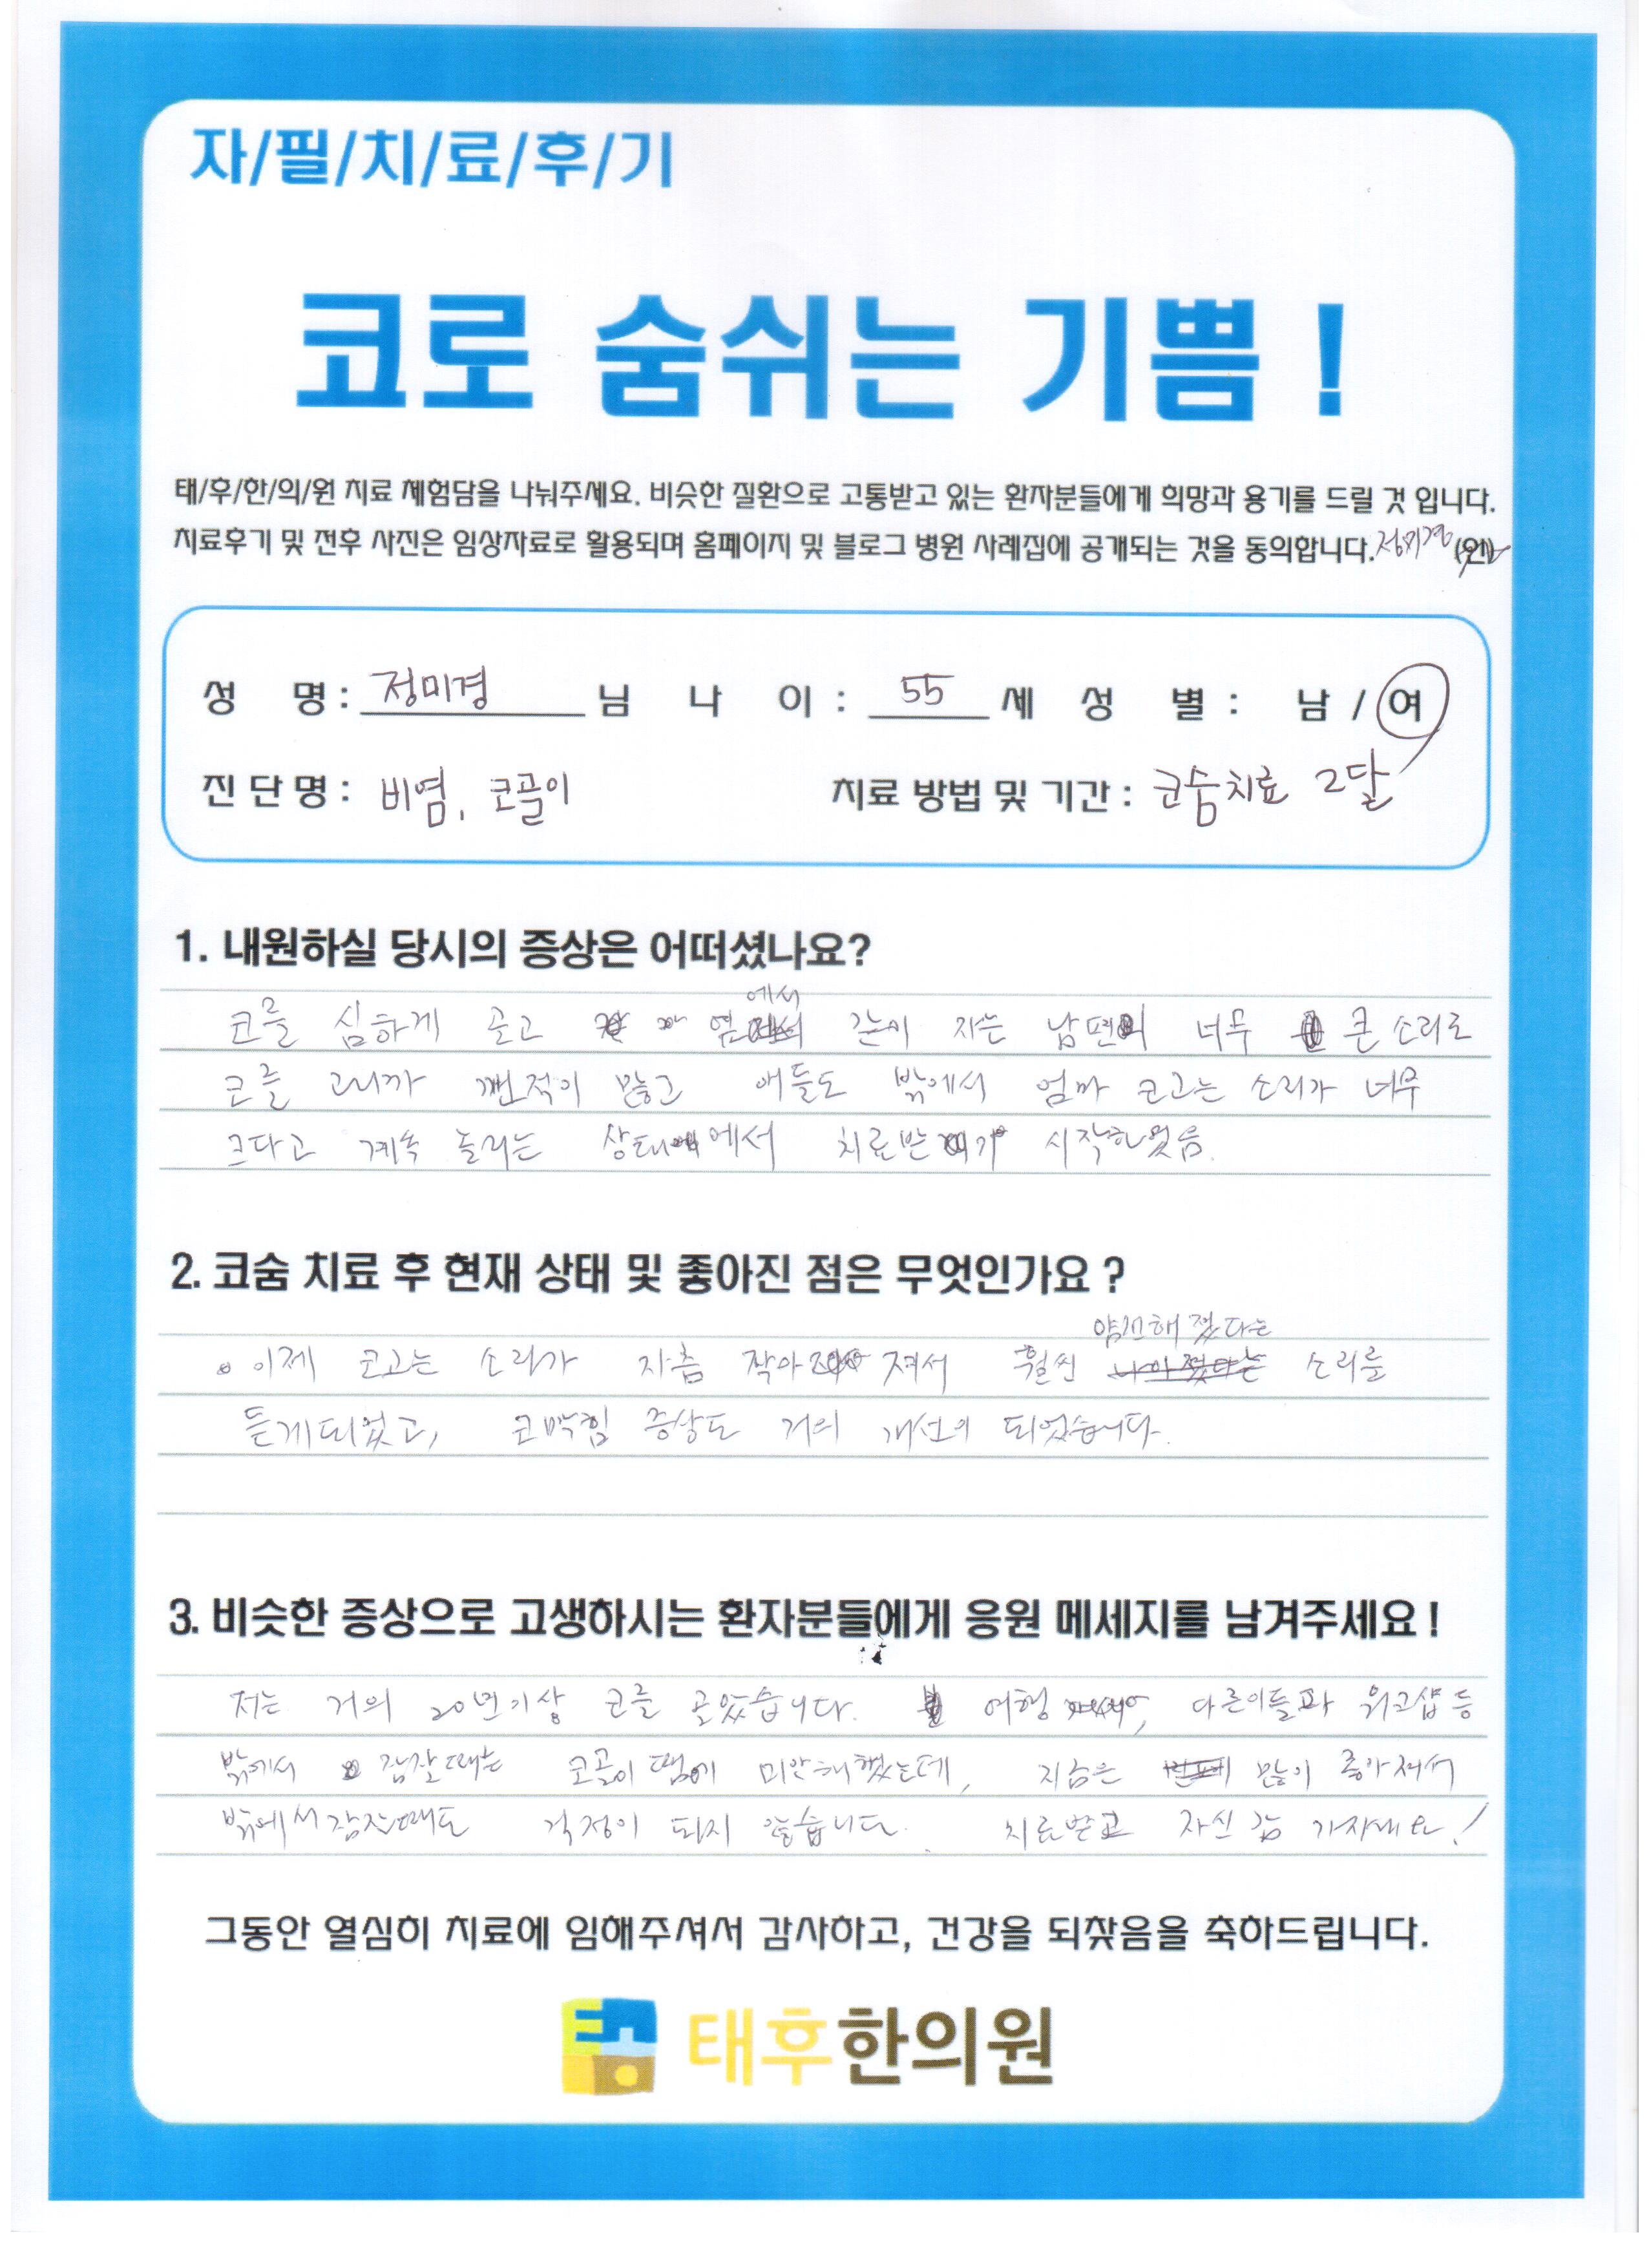 자/필/치/료/후/기
코로 숨쉬는 기쁨 !
태/후/한/의/원 치료 체험담을 나눠주세요. 비슷한 질환으로 고통받고 있는 환자분들에게 희망과 용기를 드릴 것 입니다.
치료후기 및 전후 사진은 임상자료로 활용되며 홈페이지 및 블로그 병원 사례집에 공개되는 것을 동의합니다. 정미경 (인)
성 명 : 정미경 님 나 이 : 55 세 성 별 : 남 / 여
진 단 명 : 비염, 코골이 치료 방법 및 기간 : 코숨치료 2달
1. 내원하실 당시의 증상은 어떠셨나요?
코를 심하게 골고 옆에서 같이 자는 남편이 너무 큰 소리로
코를 고니까 깬적이 많고 애들도 밖에서 엄마 코고는 소리가 너무
크다고 계속 놀리는 상태에서 치료받기 시작하였음.
2. 코숨 치료 후 현재 상태 및 좋아진 점은 무엇인가요 ?
이제 코고는 소리가 차츰 작아져서 훨씬 얌전해 졌다는 소리를
듣게되었고, 코막힘 증상도 거의 개선이 되었습니다.
3. 비슷한 증상으로 고생하시는 환자분들에게 응원 메세지를 남겨주세요 !
저는 거의 20년이상 코를 골았습니다. 여행, 다른이들과 워크샵 등
밖에서 잠잘때는 코골이 땜에 미안해했는데, 지금은 많이 좋아져서
밖에서 잠잘때도 걱정이 되지 않습니다. 치료받고 자신감 가지세요!
그동안 열심히 치료에 임해주셔서 감사하고, 건강을 되찾음을 축하드립니다.
태후한의원